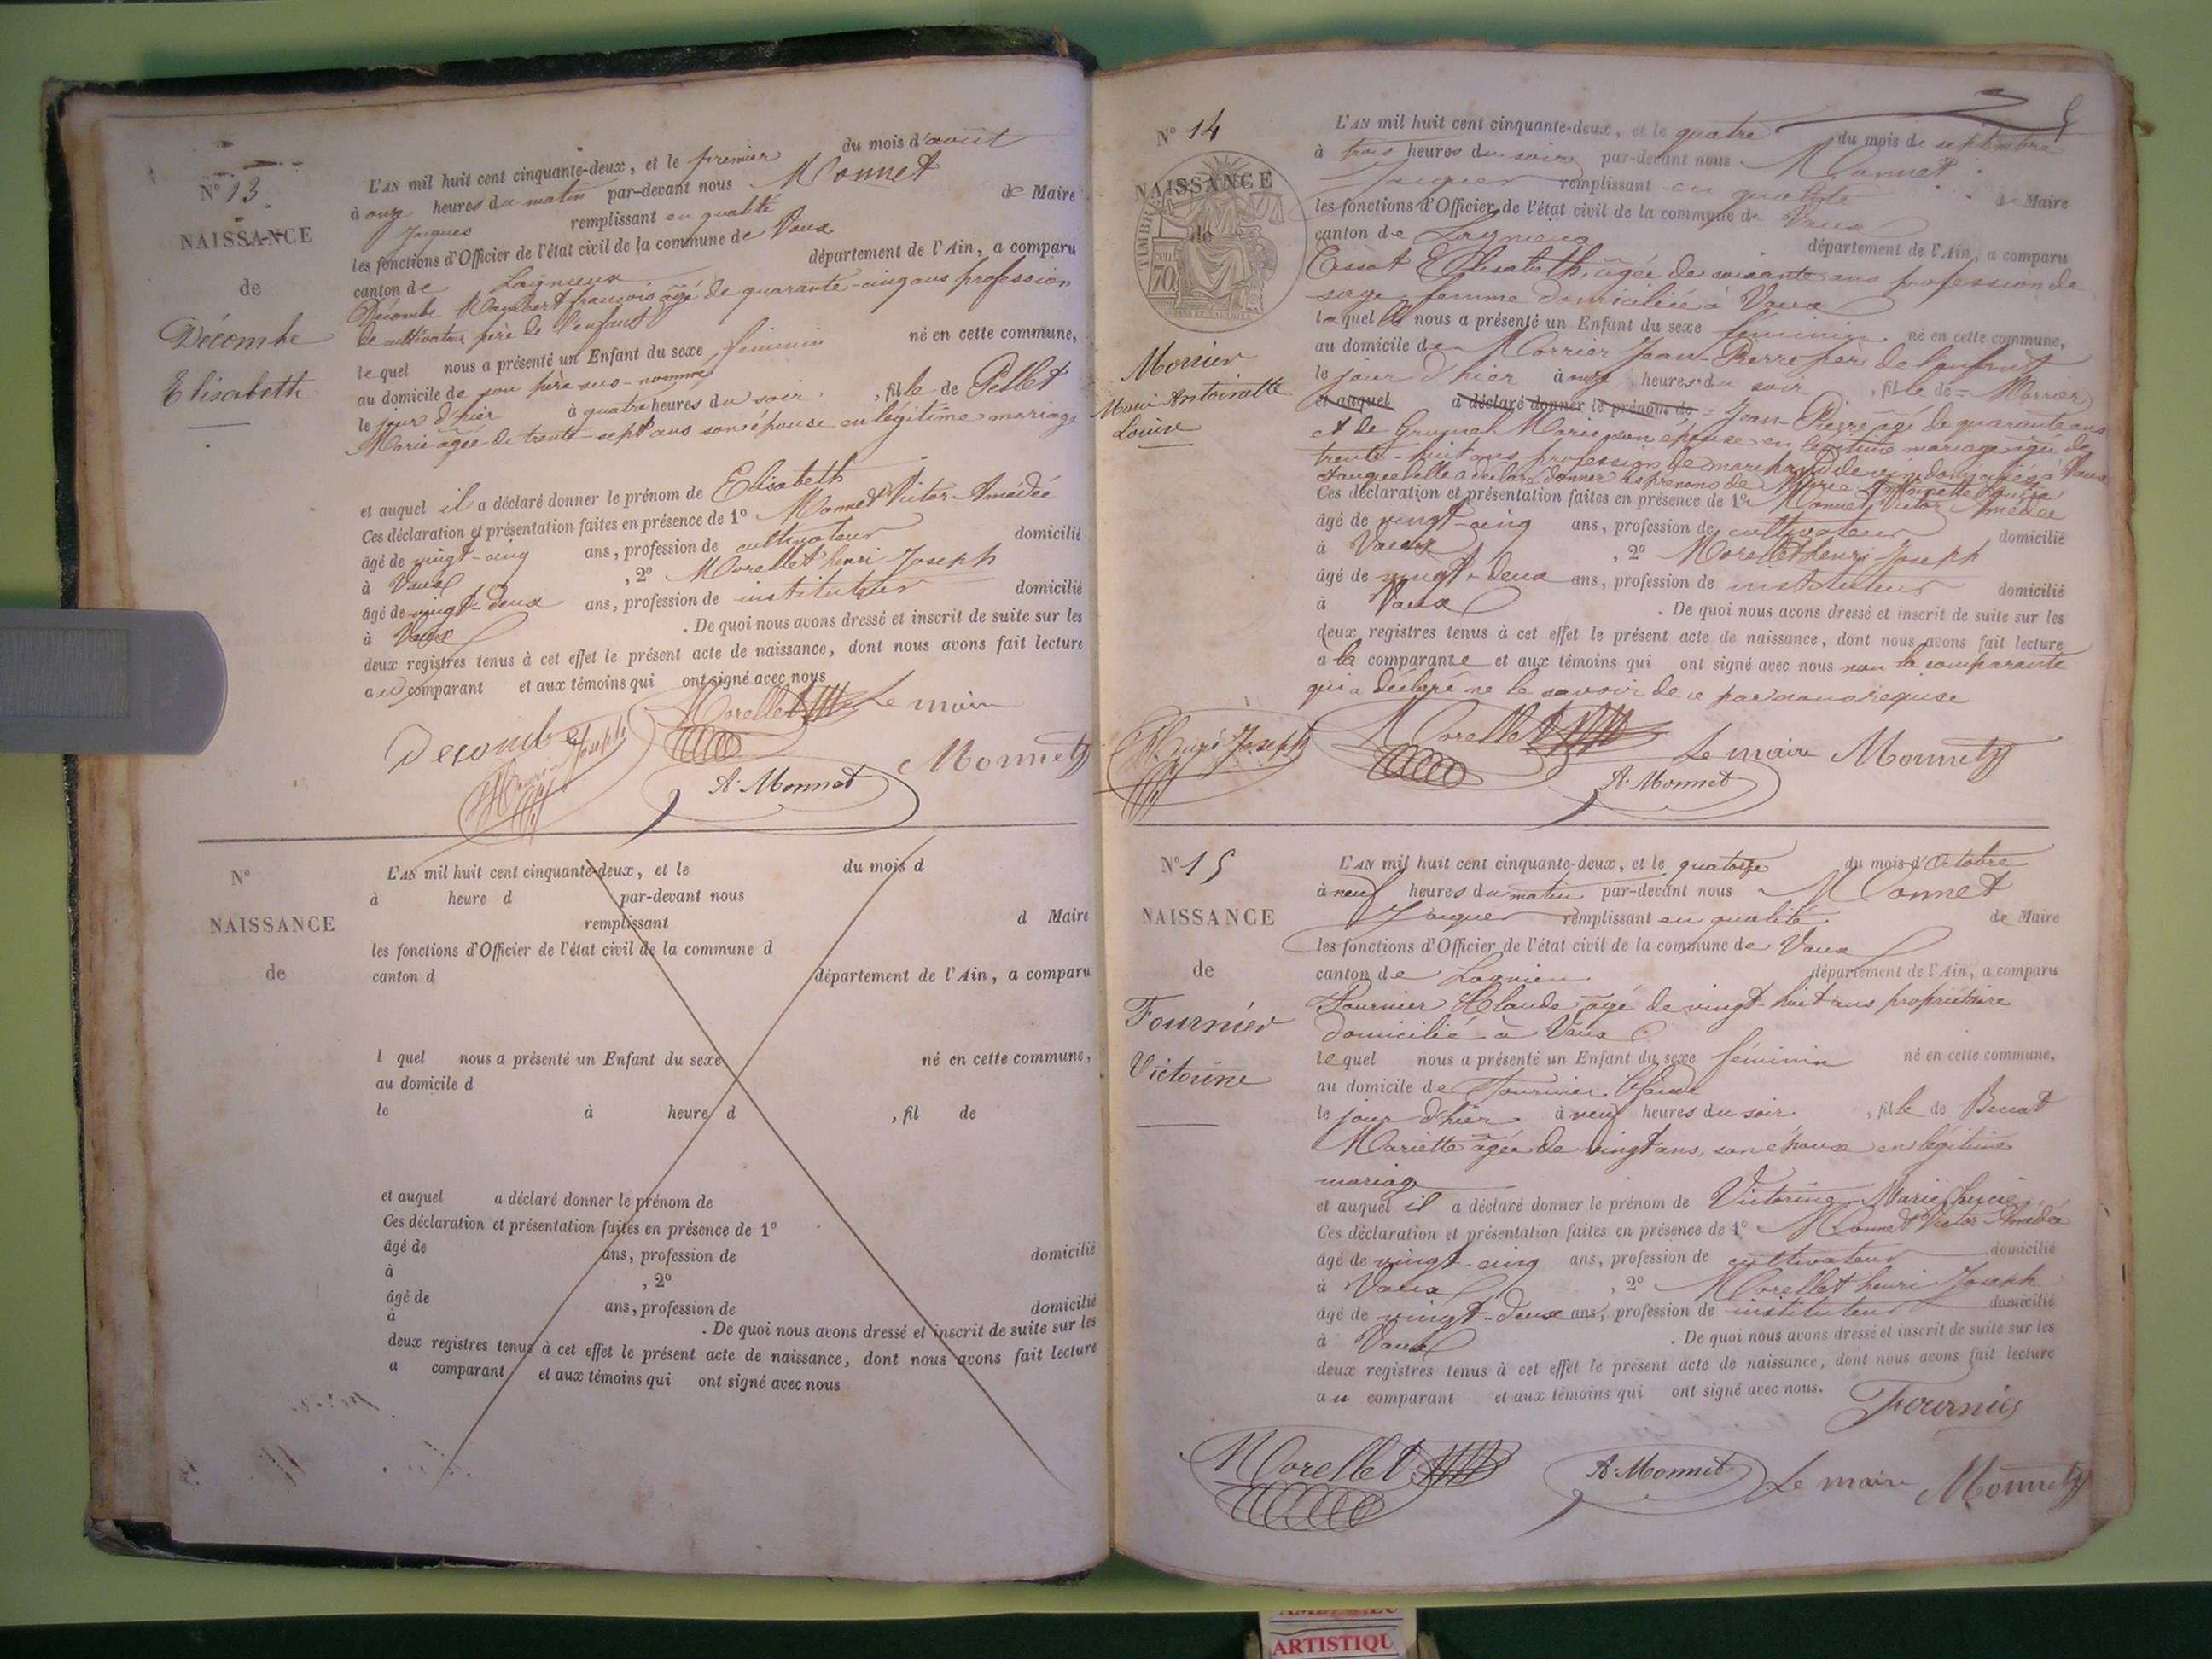 N° 13
NAISSANCE
de
Décombe
Elisabeth
L'AN mil huit cent cinquante-deux, et le premier du mois d'août
à onze heures du matin par-devant nous Monnet
Jacques remplissant en qualité de Maire
les fonctions d'Officier de l'état civil de la commune de Vaux
canton de Lagnieux département de l'Ain, a comparu
Décombe françois âgé de quarante-cinq ans profession
de cultivateur père de l'enfant
lequel nous a présenté un Enfant du sexe féminin né en cette commune,
au domicile de son père sus-nommé
le jour d'hier à quatre heures du soir, fille de Pellet
Marie âgée de trente-sept ans son épouse en légitime mariage
et auquel il a déclaré donner le prénom de Elisabeth
Ces déclaration et présentation faites en présence de 1° Monnet Victor Amédée
âgé de vingt-cinq ans, profession de cultivateur domicilié
à Vaux, 2° Morellet henri Joseph
âgé de vingt-deux ans, profession de instituteur domicilié
à Vaux. De quoi nous avons dressé et inscrit de suite sur les
deux registres tenus à cet effet le présent acte de naissance, dont nous avons fait lecture
au comparant et aux témoins qui ont signé avec nous
Morellet Le maire
Decombe
Henri Joseph A. Monnet Monnet
N°
NAISSANCE
de
L'AN mil huit cent cinquante-deux, et le du mois d
à heure d par-devant nous
remplissant d Maire
les fonctions d'Officier de l'état civil de la commune d
canton d département de l'Ain, a comparu
l quel nous a présenté un Enfant du sexe né en cette commune,
au domicile d
le à heure d , fil de
et auquel a déclaré donner le prénom de
Ces déclaration et présentation faites en présence de 1°
âgé de ans, profession de domicilié
à , 2°
âgé de ans, profession de domicilié
à . De quoi nous avons dressé et inscrit de suite sur les
deux registres tenus à cet effet le présent acte de naissance, dont nous avons fait lecture
a comparant et aux témoins qui ont signé avec nous
N° 14
NAISSANCE
de
TIMBRE
70
Morrier
Marie Antoinette
Louise
L'AN mil huit cent cinquante-deux, et le quatre du mois de septembre
à trois heures du soir par-devant nous Monnet
Jacques remplissant en qualité de Maire
les fonctions d'Officier de l'état civil de la commune de Vaux
canton de Lagnieux département de l'Ain, a comparu
Elisabeth, âgée de soixante ans profession de
sage femme domiciliée à Vaux
laquelle nous a présenté un Enfant du sexe féminin né en cette commune,
au domicile de Morrier Jean-Pierre père de l'enfant
le jour d'hier à onze heures du soir, fille de Morrier
et auquel a déclaré donner le prénom de Jean-Pierre âgé de quarante ans
et de Marie son épouse en légitime mariage âgée de
trente-huit ans profession de marchand de vin domiciliés à Vaux
auquel elle a déclaré donner les prénoms de Marie Antoinette Louise
Ces déclaration et présentation faites en présence de 1° Monnet Victor Amédée
âgé de vingt-cinq ans, profession de cultivateur domicilié
à Vaux, 2° Morellet henri Joseph
âgé de vingt-deux ans, profession de instituteur domicilié
à Vaux. De quoi nous avons dressé et inscrit de suite sur les
deux registres tenus à cet effet le présent acte de naissance, dont nous avons fait lecture
a la comparante et aux témoins qui ont signé avec nous non la comparante
qui a déclaré ne le savoir de ce par nous requise
Henri Joseph Morellet Le maire Monnet
A. Monnet
N° 15
NAISSANCE
de
Fournier
Victorine
L'AN mil huit cent cinquante-deux, et le quatorze du mois d'Octobre
à neuf heures du matin par-devant nous Monnet
Jacques remplissant en qualité de Maire
les fonctions d'Officier de l'état civil de la commune de Vaux
canton de Lagnieu département de l'Ain, a comparu
Fournier Claude âgé de vingt-huit ans propriétaire
domicilié à Vaux
lequel nous a présenté un Enfant du sexe féminin né en cette commune,
au domicile de Fournier Claude
le jour d'hier à neuf heures du soir, fille de
Mariette âgée de vingt ans, son épouse en légitime
mariage
et auquel il a déclaré donner le prénom de Victorine Marie Lucie
Ces déclaration et présentation faites en présence de 1° Monnet Victor Amédée
âgé de vingt-cinq ans, profession de cultivateur domicilié
à Vaux, 2° Morellet henri Joseph
âgé de vingt-deux ans, profession de instituteur domicilié
à Vaux. De quoi nous avons dressé et inscrit de suite sur les
deux registres tenus à cet effet le présent acte de naissance, dont nous avons fait lecture
au comparant et aux témoins qui ont signé avec nous.
Fournier
Morellet A. Monnet Le maire Monnet
ARTISTIQU